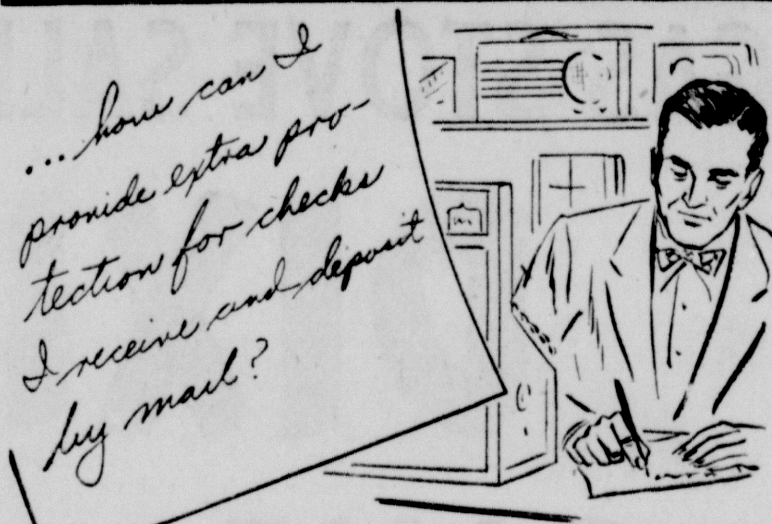 ... how can I
provide extra pro-
tection for checks
I receive and deposit
by mail?